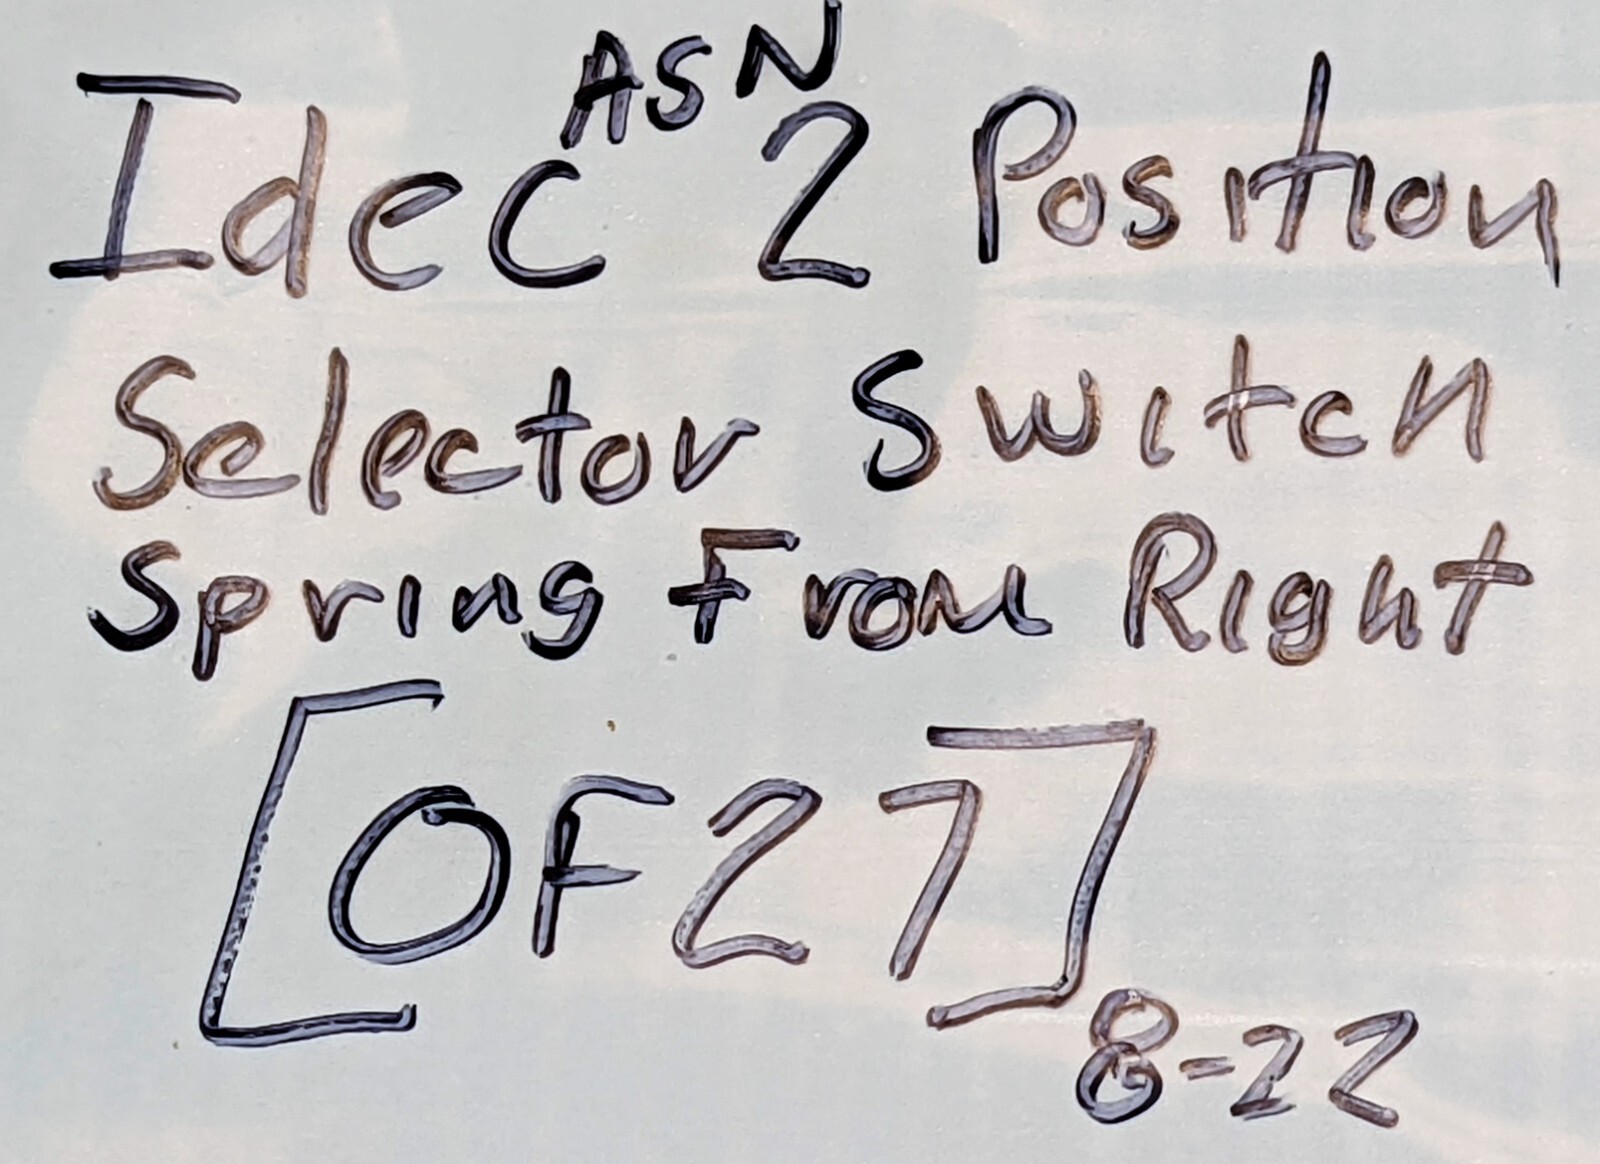 Idec ASN 2 Position
Selector Switch
Spring From Right
[OF27]
8-22